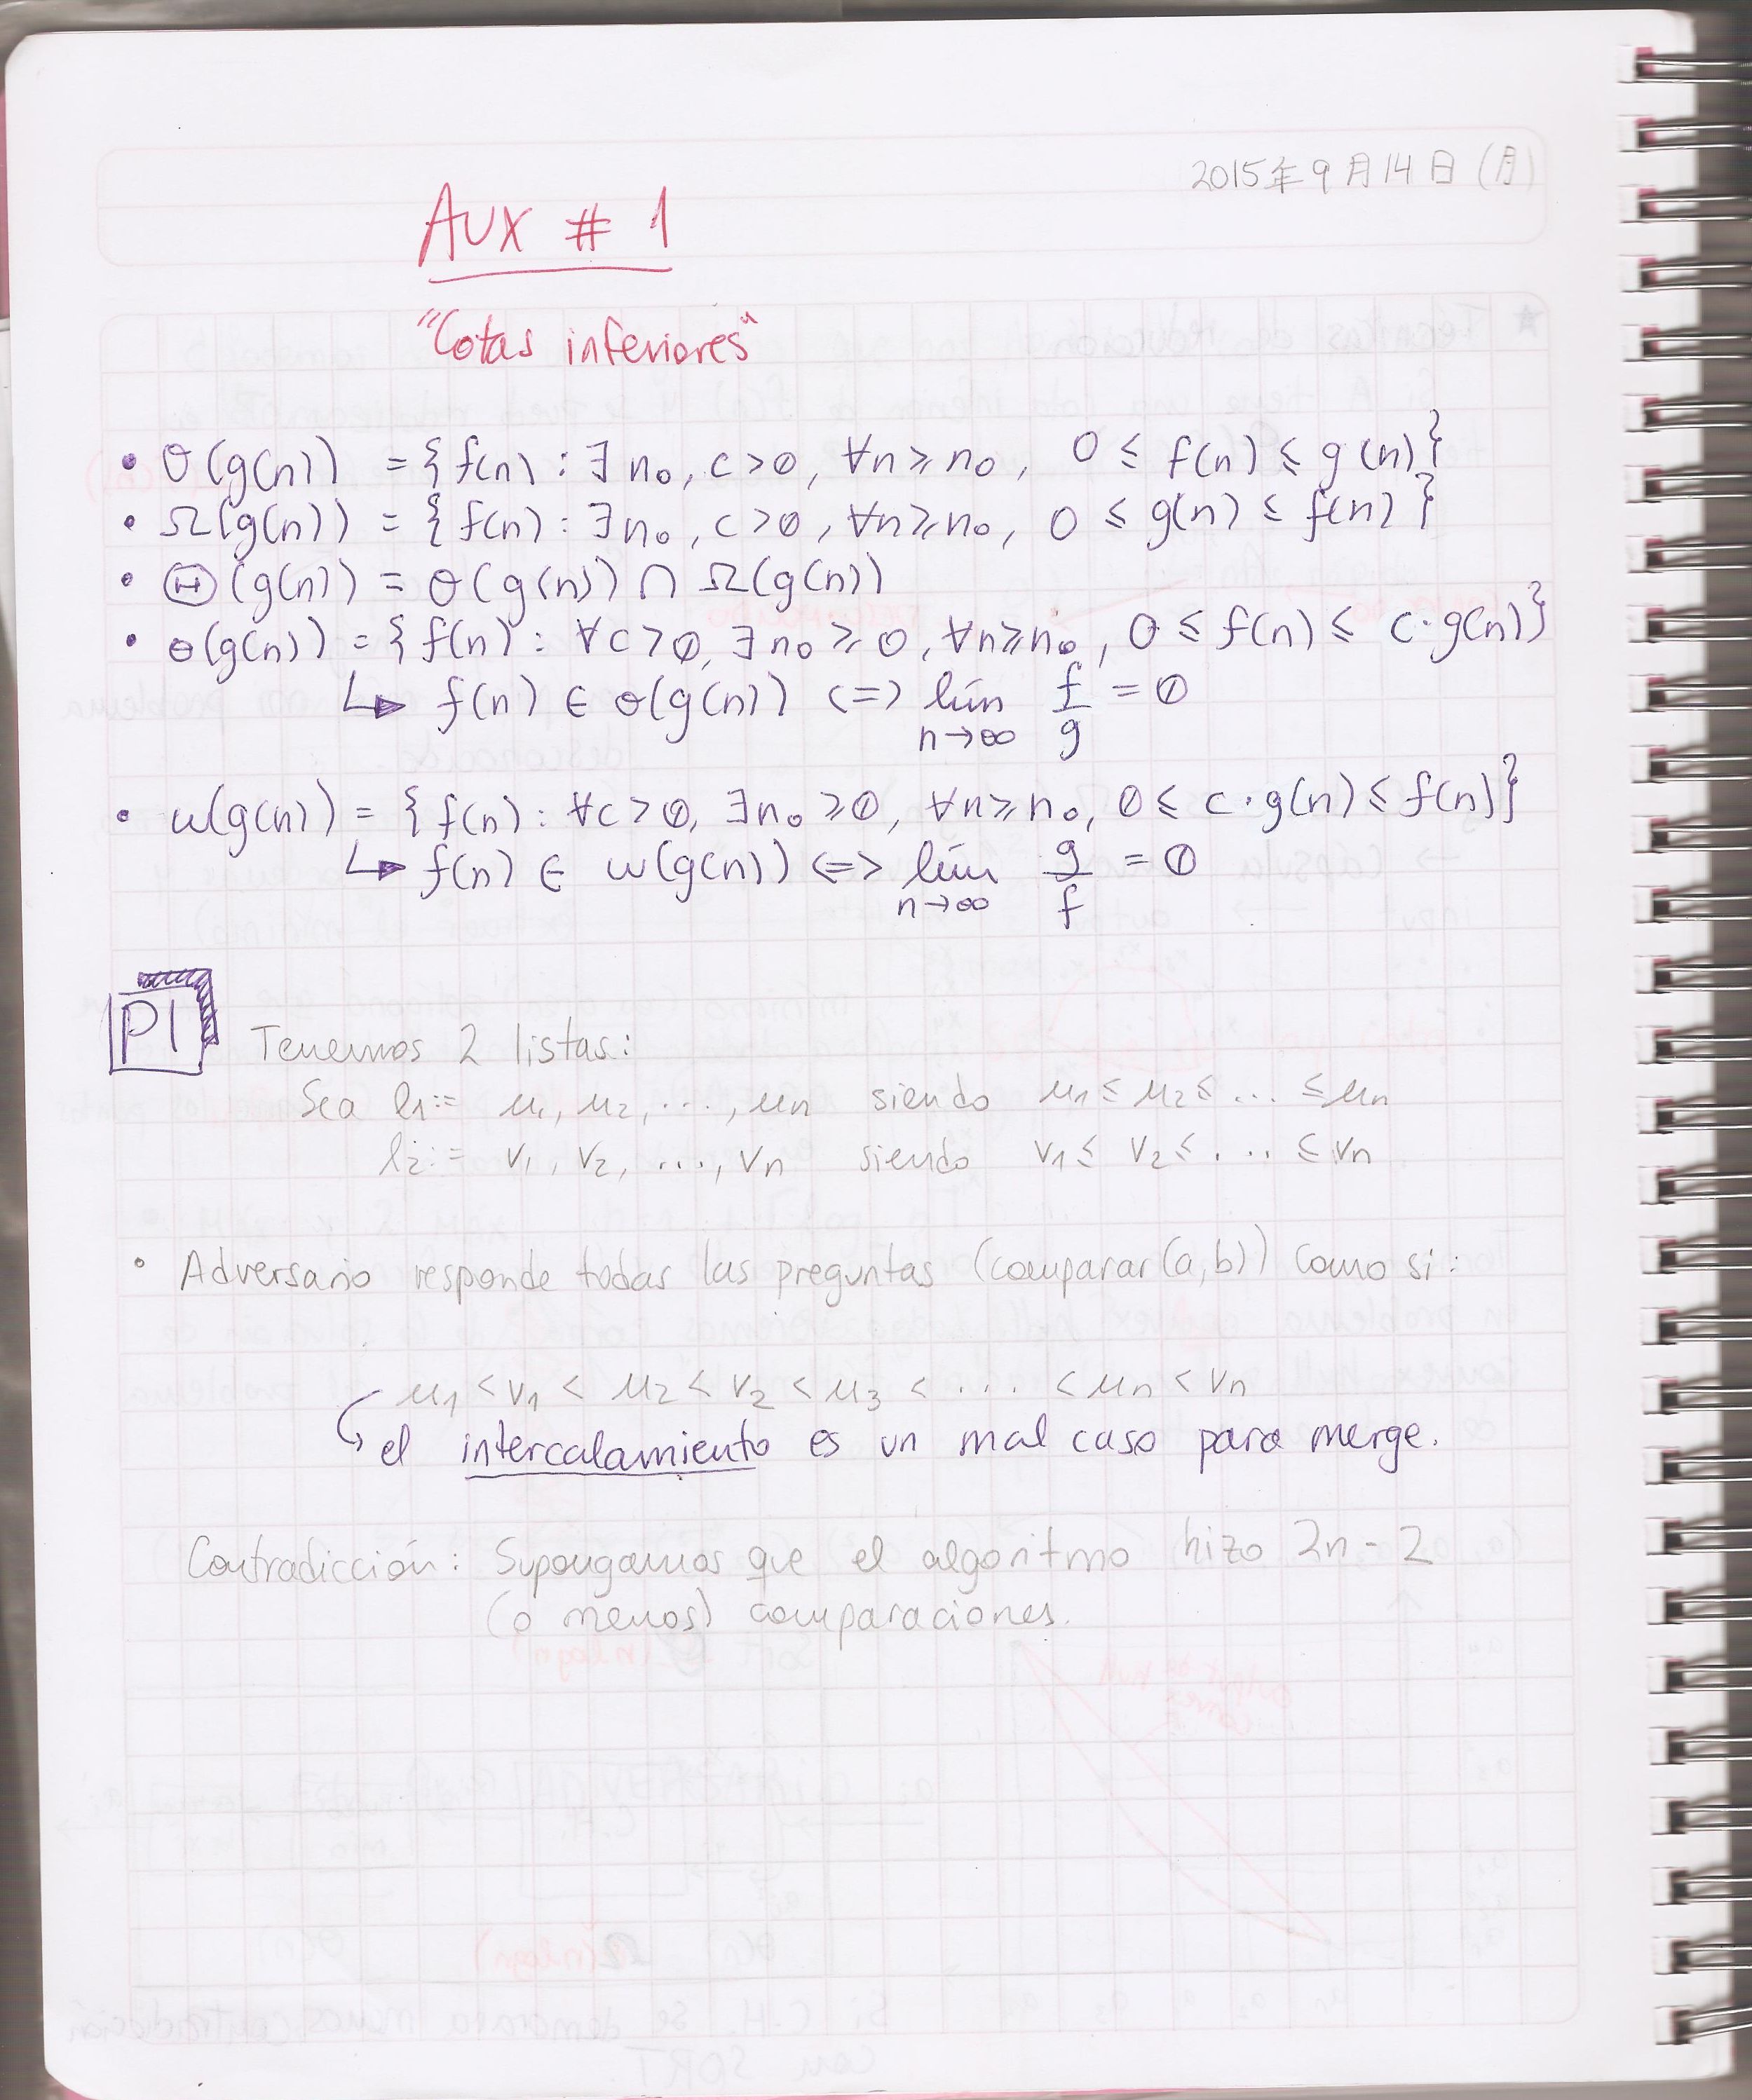 2015年9月14日(月)
AUX # 1
"Cotas inferiores"
• O(g(n)) = {f(n) : ∃ n₀, c>0, ∀n≥n₀, 0 ≤ f(n) ≤ g(n)}
• Ω(g(n)) = {f(n) : ∃ n₀, c>0, ∀n≥n₀, 0 ≤ g(n) ≤ f(n)}
• Θ(g(n)) = O(g(n)) ∩ Ω(g(n))
• o(g(n)) = {f(n) : ∀c>0, ∃n₀≥0, ∀n≥n₀, 0 ≤ f(n) ≤ c·g(n)}
↳ f(n) ∈ o(g(n)) <=> lím n→∞ f/g = 0
• ω(g(n)) = {f(n) : ∀c>0, ∃n₀≥0, ∀n≥n₀, 0 ≤ c·g(n) ≤ f(n)}
↳ f(n) ∈ ω(g(n)) <=> lím n→∞ g/f = 0
P1
Tenemos 2 listas:
Sea l₁:= μ₁, μ₂, ..., μn siendo μ₁ ≤ μ₂ ≤ ... ≤ μn
l₂:= v₁, v₂, ..., vn siendo v₁ ≤ v₂ ≤ ... ≤ vn
• Adversario responde todas las preguntas (comparar(a,b)) como si:
μ₁ < v₁ < μ₂ < v₂ < μ₃ < ... < μn < vn
↳ el intercalamiento es un mal caso para merge.
Contradicción: Supongamos que el algoritmo hizo 2n-2
(o menos) comparaciones.